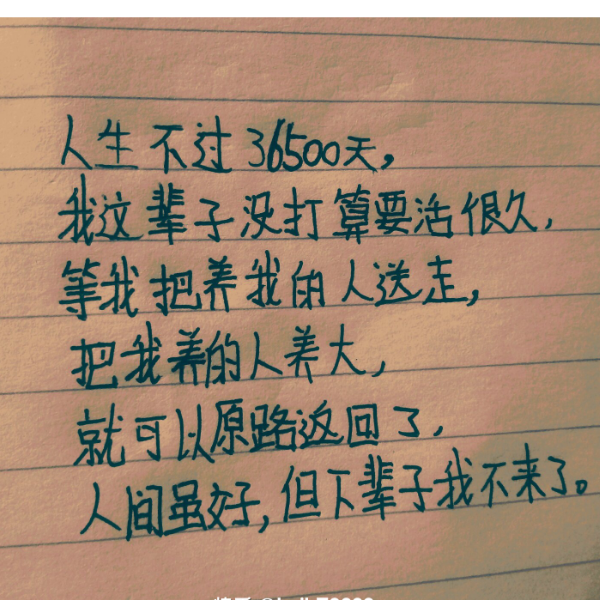 人生不过36500天，
我这辈子没打算要活很久，
等我把养我的人送走，
把我养的人养大，
就可以原路返回了，
人间虽好，但下辈子我不来了。